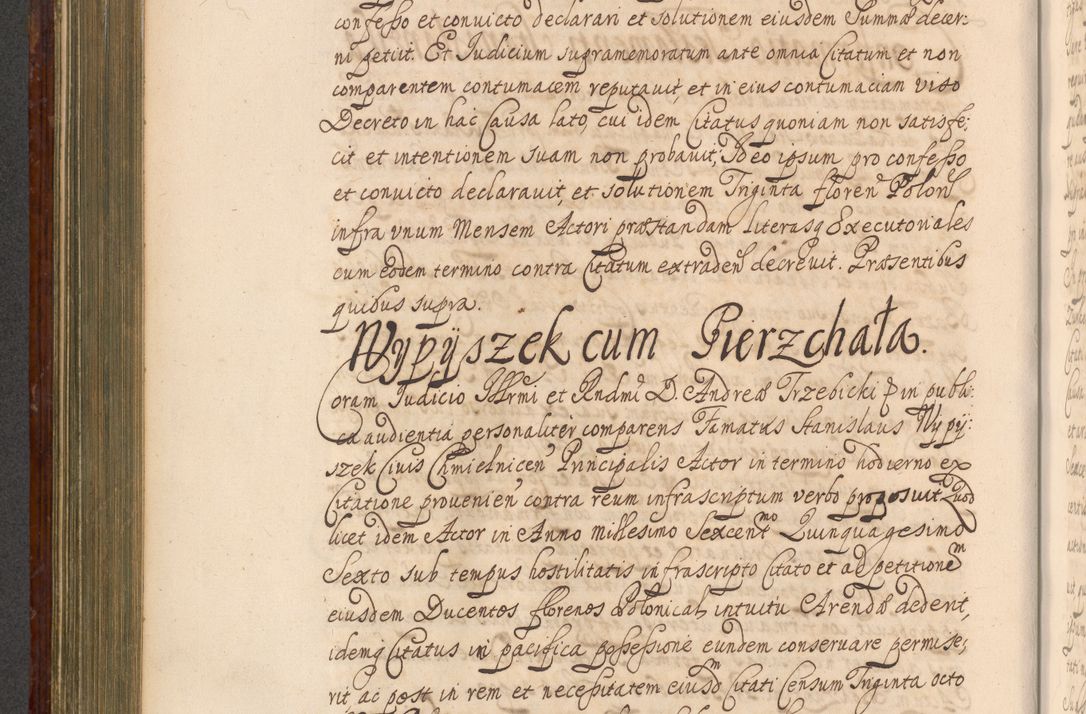 confesso et convicto declarari et solutionem eiusdem Summæ decer:
ni petiit. Et Iudicium supramemoratum ante omnia Citatum et non
comparentem contumacem reputavit, et in eius contumaciam viso
Decreto in hac Causa lato, cui idem Citatus quoniam non satisfe:
cit et intentionem suam non probavit, Ideo ipsum pro confesso
et convicto declaravit, et solutionem Triginta floren Polon
infra vnum Mensem Actori præstandam literasq Executoriales
cum eodem termino contra Citatum extraden decrevit. Præsentibus
quibus supra.
Wypÿszek cum Pierzchała.
Coram Iudicio Illrmi et Rndmi D. Andreæ Trzebicki E in publi:
ca audientia personaliter comparens Famatus Stanislaus Wypÿ:
szek Civis Chmielnicen Principalis Actor in termino hodierno ex
Citatione provenien contra reum infrascriptum verbo proposuit Quod
licet idem Actor in Anno Millesimo Sexcentmo Quinquagesimo
Sexto sub tempus hostilitatis infrascripto Citato et ad petitionem
eiusdem Ducentos florenos Polonical intuitu Arendæ dederit,
idemq Citatus in pacifica possessione eundem conservare permise;
rit ac post in rem et necessitatem eiusdm Citati Censum Triginta octo